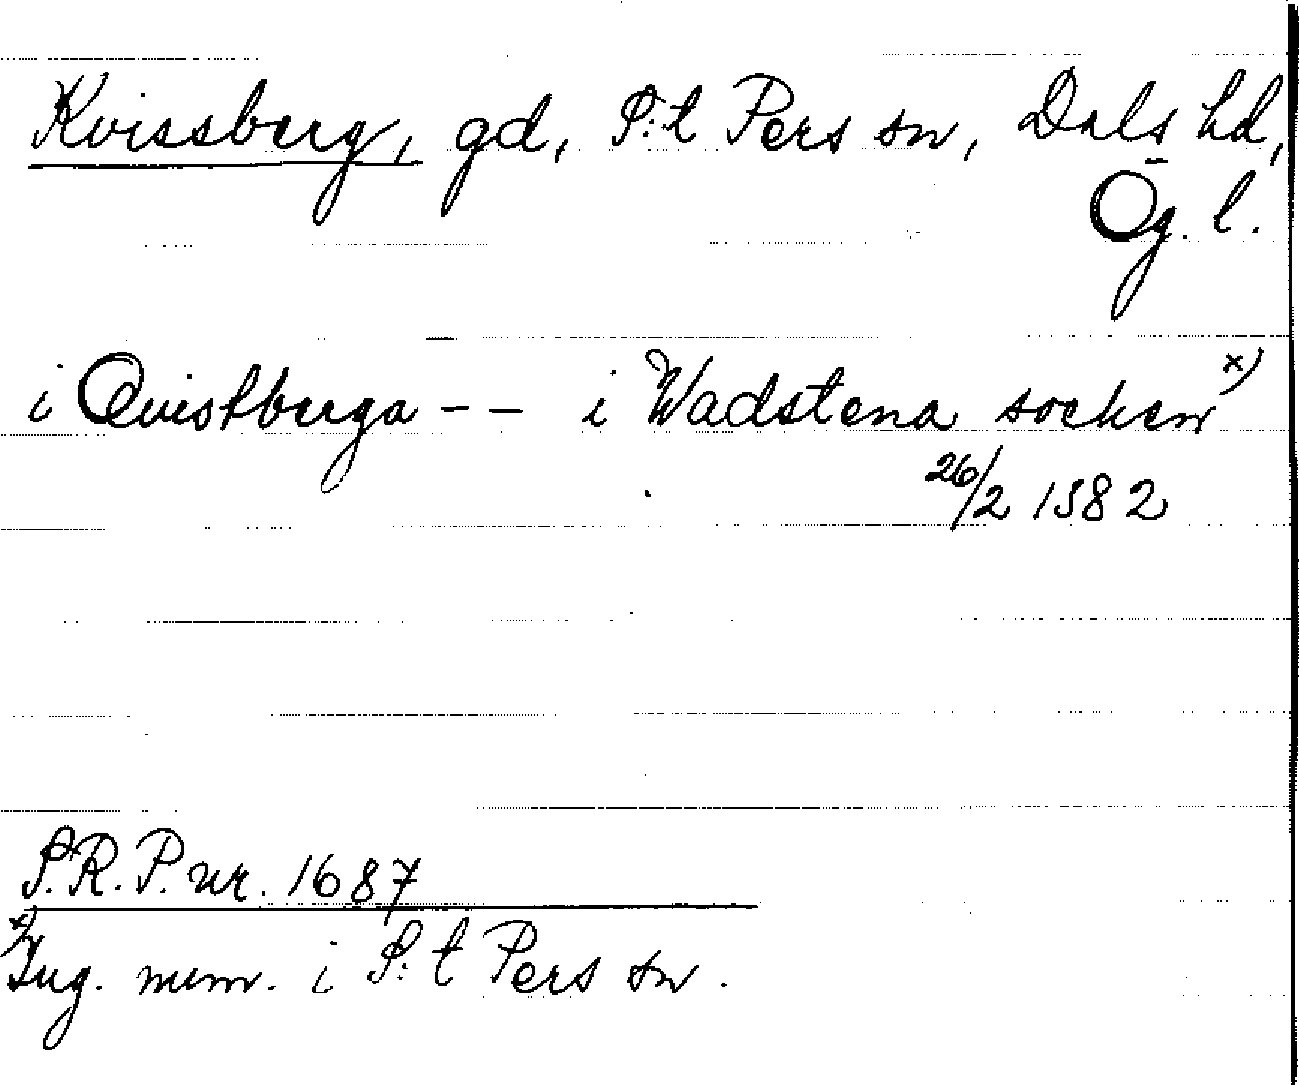 Kvissberg, gd, S:t Pers sn, Dals hd,
Ög. l.
i Qvistberga -- i Wadstena sochen x)
26/2 1582
S.R.P. nr. 1687
x) Ing. num. i S:t Pers sn.